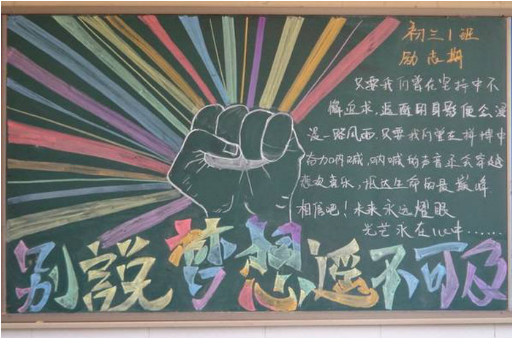 初三1班
励志期
只要我们曾在坚持中不
懈追求,蓝雨
漫一路风雨,只要我们曾在拼搏中
奋力呐喊,呐喊的声音还会穿越
抵达生命的最巅峰
相信吧!未来永远耀眼
光芒永在心中……
别說梦想遥不可及